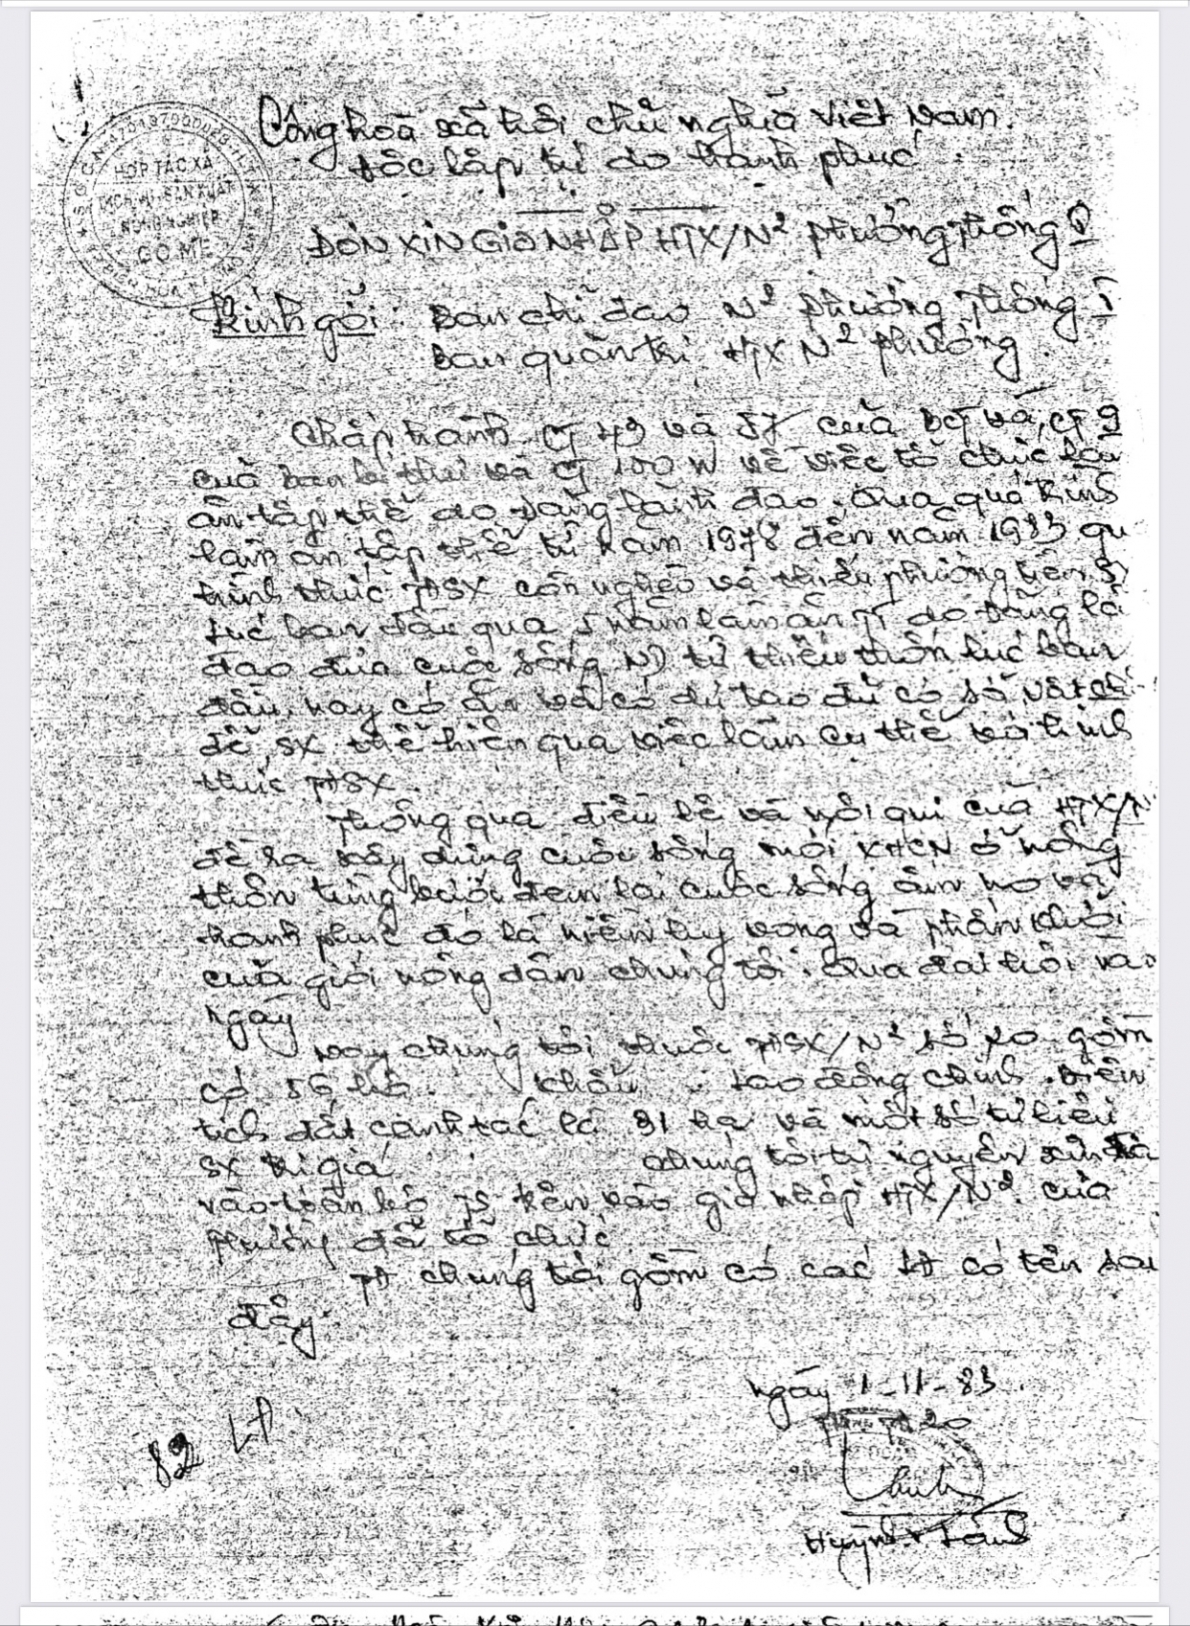 HỢP TÁC XÃ
DỊCH VỤ-SẢN XUẤT
NÔNG NGHIỆP
GÒ ME
Công hoà xã hôi chủ nghĩa Viêt Nam.
Đôc lâp tự do hanh phúc
ĐƠN XIN GIA NHÂP HTX/N² phường Thống I
Kính gởi: Ban chỉ đao N² phường Thống I
Ban quản tri HTX N² phường
Châp hành CT 43 và 57 của BCT và CT 9
của ban bí thư và CT 100 về viêc tổ chức làm
ăn tâp thể do Đảng lãnh đao. Qua quá trình
làm ăn tâp thể từ năm 1978 đến năm 1983 qu
hình thức TĐSX còn nghèo và thiếu phương tiên SX
lúc ban đầu qua 5 năm làm ăn TT do Đảng lã
đao đưa cuôc sống ND từ thiếu thốn lúc ban
đầu, nay có ăn và có dư tao đủ cơ sở vât chấ
để SX thể hiên qua viêc làm cu thể với hình
thức TĐSX.
Thông qua điều lê và nôi qui của HTX/N²
đề ra xây dựng cuôc sống mới XHCN ở nông
thôn từng bước đem lai cuôc sống ấm no và
hanh phúc đó là niềm hy vong và phấn khởi
của giới nông dân chúng tôi. Qua đai hôi vào
ngày
Nay chúng tôi thuôc TĐSX/N² số 20 gồm
có 56 hô. khẩu. lao đông chính. Diên
tích đất canh tác là 31 ha và môt số tư liêu
SX tri giá chúng tôi tự nguyên xin
vào toàn bô TS trên vào gia nhâp HTX/N² của
phường để tổ chức
TĐ chúng tôi gồm có các LĐ có tên sau
đây:
ngày 1-11-83.
82 LĐ.
TĐ 20
Huỳnh